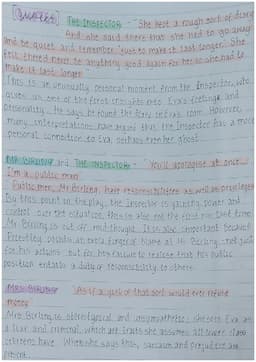 [Quotes]
THE INSPECTOR - "She kept a rough sort of diary
And she said there that she had to go away
and be quiet and remember 'just to make it last longer'. She
felt there'd never be anything as good again for her so she had to
make it last longer"
This is an unusually personal moment from the Inspector, who
gives us one of the first insights into Eva's feelings and
personality. He says he found the diary in Eva's room. However
many interpretations have argued that the Inspector has a more
personal connection to Eva perhaps even her ghost
MR BIRLING and THE INSPECTOR - "You'll apologise at once...
I'm a public man
Public men, Mr Birling, have responsibilities as well as privileges
By this point in the play, the Inspector is gaining power and
control over the situation, this is also not the first time that
Mr Birling is cut off mid thought. It is also important because
Priestley points an extra finger of blame at Mr Birling - not just
for his actions, but for his failure to realise that his public
position entails a duty of responsibility to others.
MRS BIRLING "As if a girl of that sort would ever refuse
money"
Mrs Birling is stereotypical and unsympathetic; she sees Eva as
a liar and criminal, which are traits she assumes all lower class
citizens have. When she says this, sarcasm and prejudice are
present.